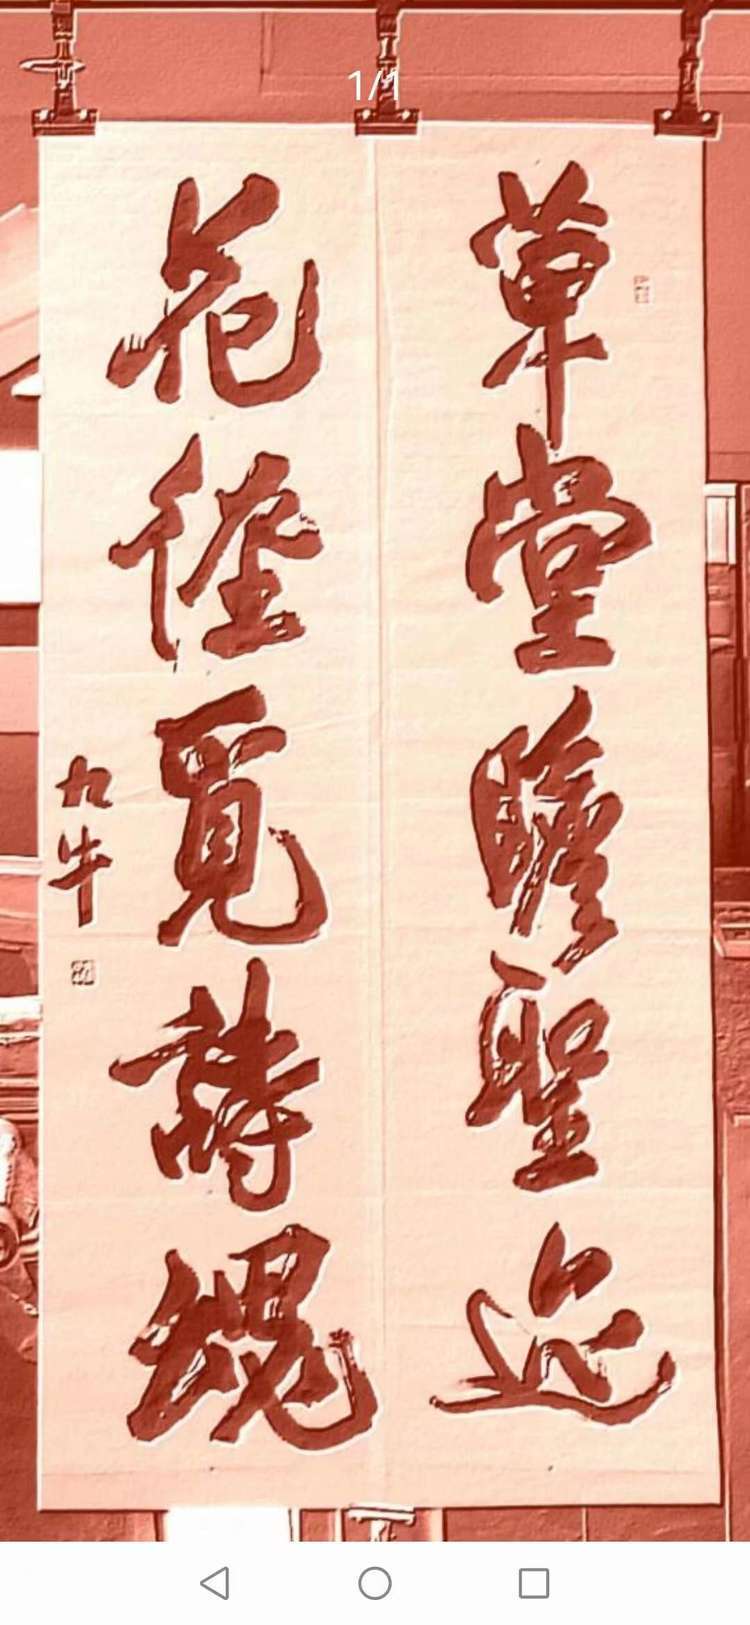 1/1
草堂瞻聖迹
花徑覓詩魂
九牛